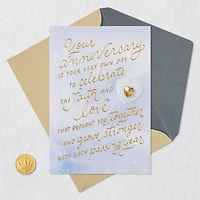 Your
anniversary
is your very own day
to celebrate
the faith and
love
that brought you together
and grows stronger
with each passing year